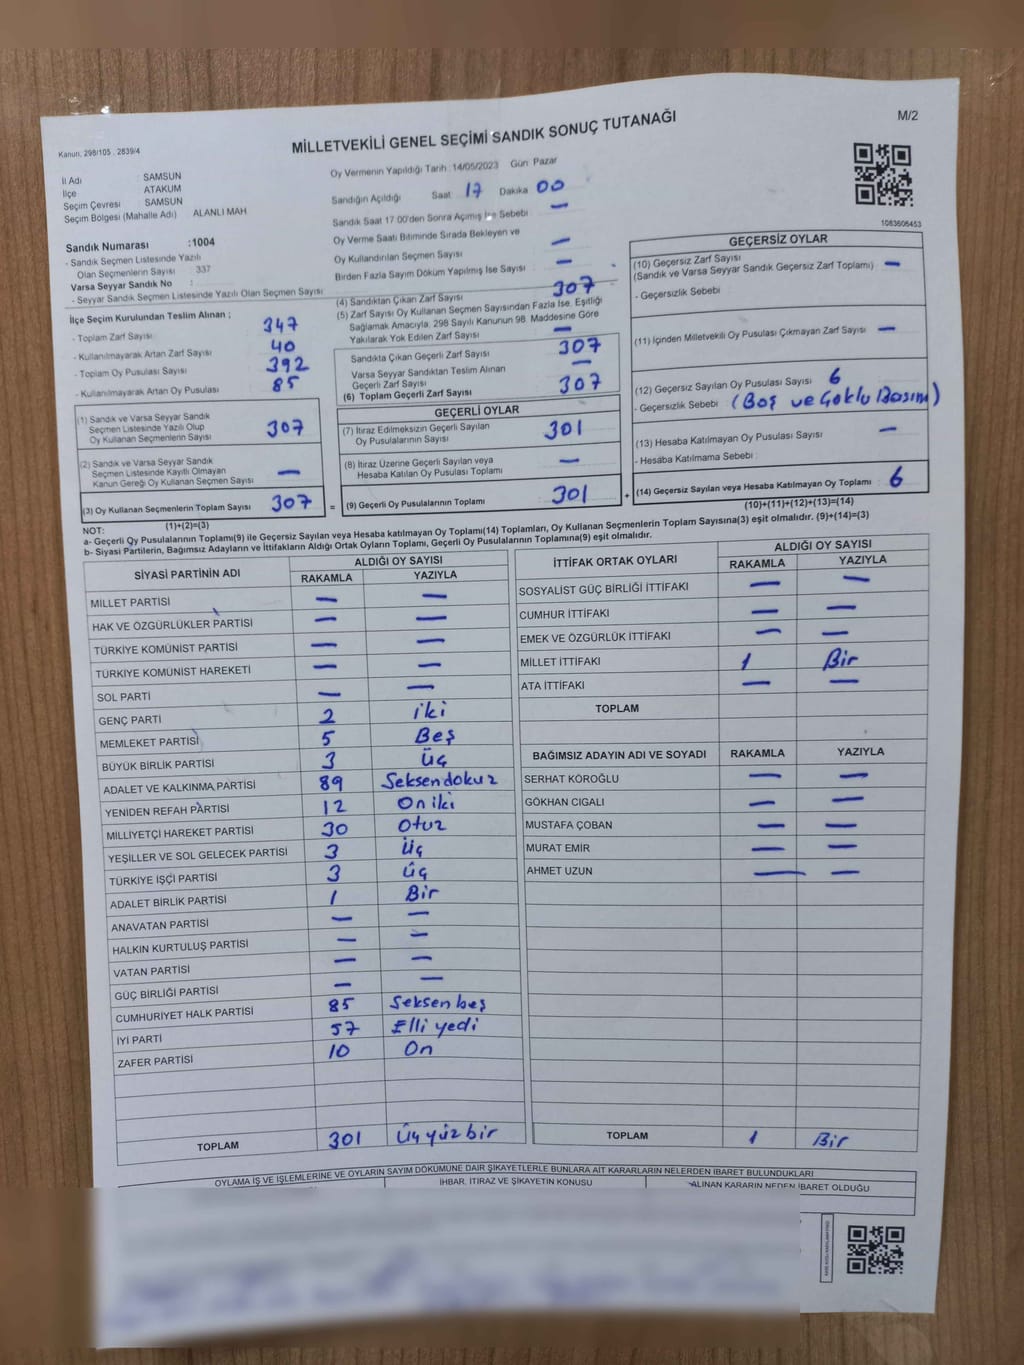 M/2
MİLLETVEKİLİ GENEL SEÇİMİ SANDIK SONUÇ TUTANAĞI
Kanun, 298/105 , 2839/4
İl Adı : SAMSUN
İlçe : ATAKUM
Seçim Çevresi : SAMSUN
Seçim Bölgesi (Mahalle Adı) ALANLI MAH
Sandık Numarası :1004
- Sandık Seçmen Listesinde Yazılı
Olan Seçmenlerin Sayısı 337
Varsa Seyyar Sandık No :
- Seyyar Sandık Seçmen Listesinde Yazılı Olan Seçmen Sayısı
Oy Vermenin Yapıldığı Tarih : 14/05/2023 Gün: Pazar
Sandığın Açıldığı Saat 17 Dakika 00
Sandık Saat 17.00'den Sonra Açımış İse Sebebi —
Oy Verme Saati Bitiminde Sırada Bekleyen ve
Oy Kullandırılan Seçmen Sayısı —
Birden Fazla Sayım Döküm Yapılmış İse Sayısı —
1083606453
İlçe Seçim Kurulundan Teslim Alınan ;
- Toplam Zarf Sayısı 347
- Kullanılmayarak Artan Zarf Sayısı 40
- Toplam Oy Pusulası Sayısı 392
- Kullanılmayarak Artan Oy Pusulası 85
(1) Sandık ve Varsa Seyyar Sandık
Seçmen Listesinde Yazılı Olup
Oy Kullanan Seçmenlerin Sayısı 307
(2) Sandık ve Varsa Seyyar Sandık
Seçmen Listesinde Kayıtlı Olmayan
Kanun Gereği Oy Kullanan Seçmen Sayısı —
(3) Oy Kullanan Seçmenlerin Toplam Sayısı 307 =
(1)+(2)=(3)
(4) Sandıktan Çıkan Zarf Sayısı 307
(5) Zarf Sayısı Oy Kullanan Seçmen Sayısından Fazla İse, Eşitliği
Sağlamak Amacıyla, 298 Sayılı Kanunun 98. Maddesine Göre
Yakılarak Yok Edilen Zarf Sayısı —
Sandıkta Çıkan Geçerli Zarf Sayısı 307
Varsa Seyyar Sandıktan Teslim Alınan
Geçerli Zarf Sayısı —
(6) Toplam Geçerli Zarf Sayısı 307
GEÇERLİ OYLAR
(7) İtiraz Edilmeksizin Geçerli Sayılan
Oy Pusulalarının Sayısı 301
(8) İtiraz Üzerine Geçerli Sayılan veya
Hesaba Katılan Oy Pusulası Toplamı —
(9) Geçerli Oy Pusulalarının Toplamı 301 +
GEÇERSİZ OYLAR
(10) Geçersiz Zarf Sayısı
(Sandık ve Varsa Seyyar Sandık Geçersiz Zarf Toplamı) —
- Geçersizlik Sebebi
(11) İçinden Milletvekili Oy Pusulası Çıkmayan Zarf Sayısı —
(12) Geçersiz Sayılan Oy Pusulası Sayısı 6
- Geçersizlik Sebebi (Boş ve Çoklu Basım)
(13) Hesaba Katılmayan Oy Pusulası Sayısı —
- Hesaba Katılmama Sebebi
(14) Geçersiz Sayılan veya Hesaba Katılmayan Oy Toplamı 6
(10)+(11)+(12)+(13)=(14)
NOT:
a- Geçerli Oy Pusulalarının Toplamı(9) ile Geçersiz Sayılan veya Hesaba katılmayan Oy Toplamı(14) Toplamları, Oy Kullanan Seçmenlerin Toplam Sayısına(3) eşit olmalıdır. (9)+(14)=(3)
b- Siyasi Partilerin, Bağımsız Adayların ve İttifakların Aldığı Ortak Oyların Toplamı, Geçerli Oy Pusulalarının Toplamına(9) eşit olmalıdır.
SİYASİ PARTİNİN ADI ALDIĞI OY SAYISI
RAKAMLA YAZIYLA
MİLLET PARTİSİ — —
HAK VE ÖZGÜRLÜKLER PARTİSİ — —
TÜRKİYE KOMÜNİST PARTİSİ — —
TÜRKİYE KOMÜNİST HAREKETİ — —
SOL PARTİ — —
GENÇ PARTİ 2 iki
MEMLEKET PARTİSİ 5 Beş
BÜYÜK BİRLİK PARTİSİ 3 Üç
ADALET VE KALKINMA PARTİSİ 89 Seksendokuz
YENİDEN REFAH PARTİSİ 12 On iki
MİLLİYETÇİ HAREKET PARTİSİ 30 Otuz
YEŞİLLER VE SOL GELECEK PARTİSİ 3 Üç
TÜRKİYE İŞÇİ PARTİSİ 3 Üç
ADALET BİRLİK PARTİSİ 1 Bir
ANAVATAN PARTİSİ — —
HALKIN KURTULUŞ PARTİSİ — —
VATAN PARTİSİ — —
GÜÇ BİRLİĞİ PARTİSİ — —
CUMHURİYET HALK PARTİSİ 85 Seksen beş
İYİ PARTİ 57 Elli yedi
ZAFER PARTİSİ 10 On
TOPLAM 301 Üç yüz bir
İTTİFAK ORTAK OYLARI ALDIĞI OY SAYISI
RAKAMLA YAZIYLA
SOSYALİST GÜÇ BİRLİĞİ İTTİFAKI — —
CUMHUR İTTİFAKI — —
EMEK VE ÖZGÜRLÜK İTTİFAKI — —
MİLLET İTTİFAKI 1 Bir
ATA İTTİFAKI — —
TOPLAM
BAĞIMSIZ ADAYIN ADI VE SOYADI RAKAMLA YAZIYLA
SERHAT KÖROĞLU — —
GÖKHAN CIGALI — —
MUSTAFA ÇOBAN — —
MURAT EMİR — —
AHMET UZUN — —
TOPLAM 1 Bir
OYLAMA İŞ VE İŞLEMLERİNE VE OYLARIN SAYIM DÖKÜMÜNE DAİR ŞİKAYETLERLE BUNLARA AİT KARARLARIN NELERDEN İBARET BULUNDUKLARI
İHBAR, İTİRAZ VE ŞİKAYETİN KONUSU ALINAN KARARIN NEDEN İBARET OLDUĞU